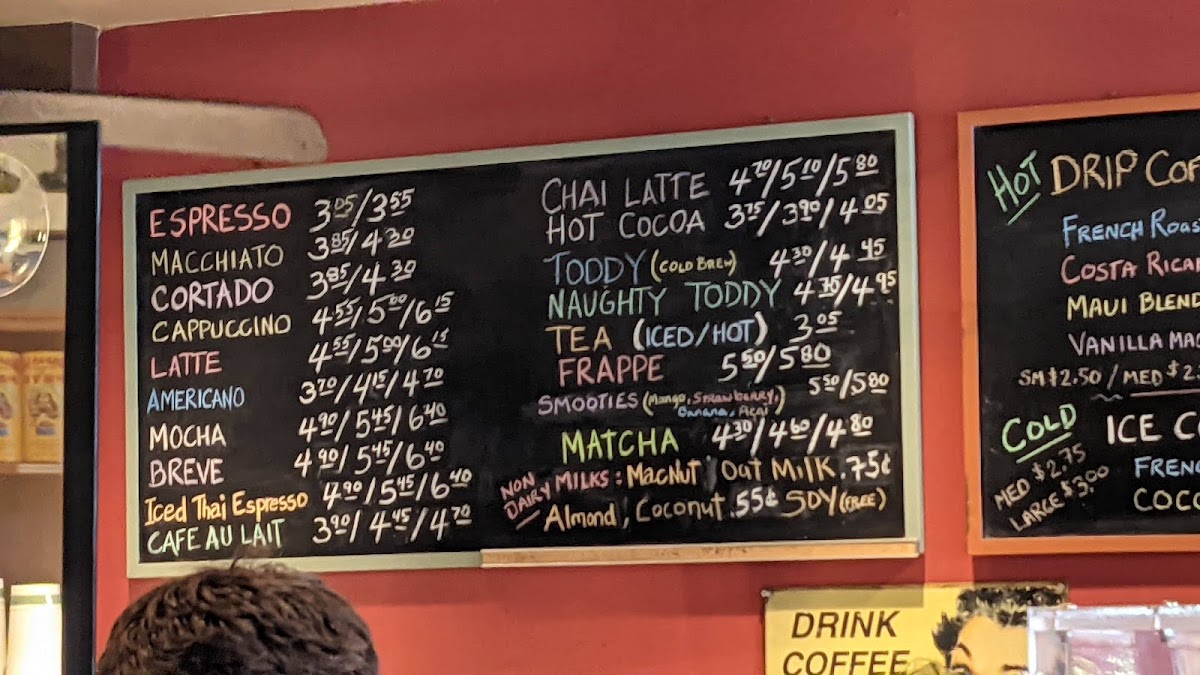 ESPRESSO 3.05/3.55
MACCHIATO 3.85/4.30
CORTADO 3.85/4.30
CAPPUCCINO 4.55/5.00/6.15
LATTE 4.55/5.00/6.15
AMERICANO 3.70/4.15/4.70
MOCHA 4.90/5.45/6.40
BREVE 4.90/5.45/6.40
Iced Thai Espresso 4.90/5.45/6.40
CAFE AU LAIT 3.90/4.45/4.70
CHAI LATTE 4.70/5.10/5.80
HOT COCOA 3.75/3.90/4.05
TODDY (COLD BREW) 4.30/4.45
NAUGHTY TODDY 4.75/4.95
TEA (ICED/HOT) 3.05
FRAPPE 5.50/5.80
SMOOTIES (Mango, Strawberry, 5.50/5.80
Banana, Acai)
MATCHA 4.30/4.60/4.80
NON DAIRY MILKS: MacNut, Oat Milk .75¢
Almond, Coconut .55¢ SOY (FREE)
HOT DRIP COF
FRENCH ROAS
COSTA RICA
MAUI BLEND
VANILLA MAC
SM $2.50 / MED $2.
COLD ICE CO
MED $2.75 FRENC
LARGE $3.00 COCO
DRINK
COFFEE